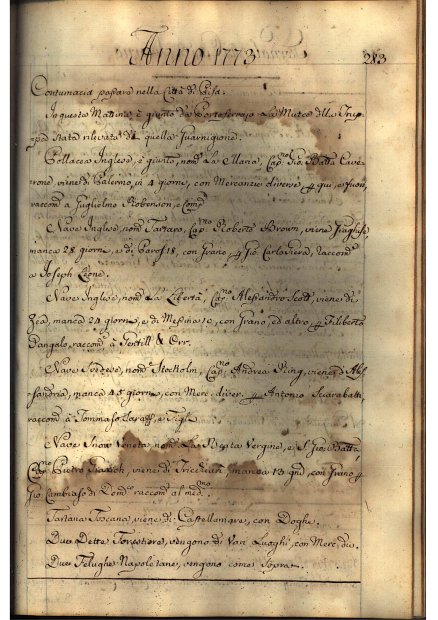 Anno 1773
283
Contumacia passare nella Città di Pisa.
In questa Mattina è giunta da Portoferrajo la Muta della Trup=
pa Stata rilevata da quella Guarnigione.
Pollacca Inglese, è giunta, nom.ta La Maria, Cap.no Gio: Batta Cave=
rone, viene di Palermo, in 4 giorni, con Mercanzie diverse p qui, e fuori,
raccom.ta a Guglielmo Robenson, e Comp.
Nave Inglese, nom.ta Tartaro, Cap.no Roberto Brown, viene
manca 28 giorni, e di 18, con Grano p Gio: Carlo raccom.ta
a Joseph Leone.
Nave Inglese, nom.ta La Libertà, Cap.no Alessandro Scott, viene di
Zea, manca 24 giorni, e di Messina con Grano, ed altro p Filiberto
Dangalo, raccom.ta à & Orr.
Nave Svedese, nom.ta Stockolm, Cap.no Andrea King, viene d'Ales=
sandria, manca 45 giorni, con Merc. diver. p Antonio
raccom.ta a Tommaso e Figli.
Nave Snow Veneta, nom.ta La Beata Vergine, e S. Gio: Batta,
Cap.no Pietro viene di Trickeri, manca 13 gni, con Grano p
Gio: Cambiaso di Dom.co raccom.ta al med.mo
Tartana Toscana, viene di Castellamare, con Doghe.
Due Dette Forestiere, vengono di Varj Luoghi, con Merc. div.
Due Felughe Napoletane, vengono come Sopra.